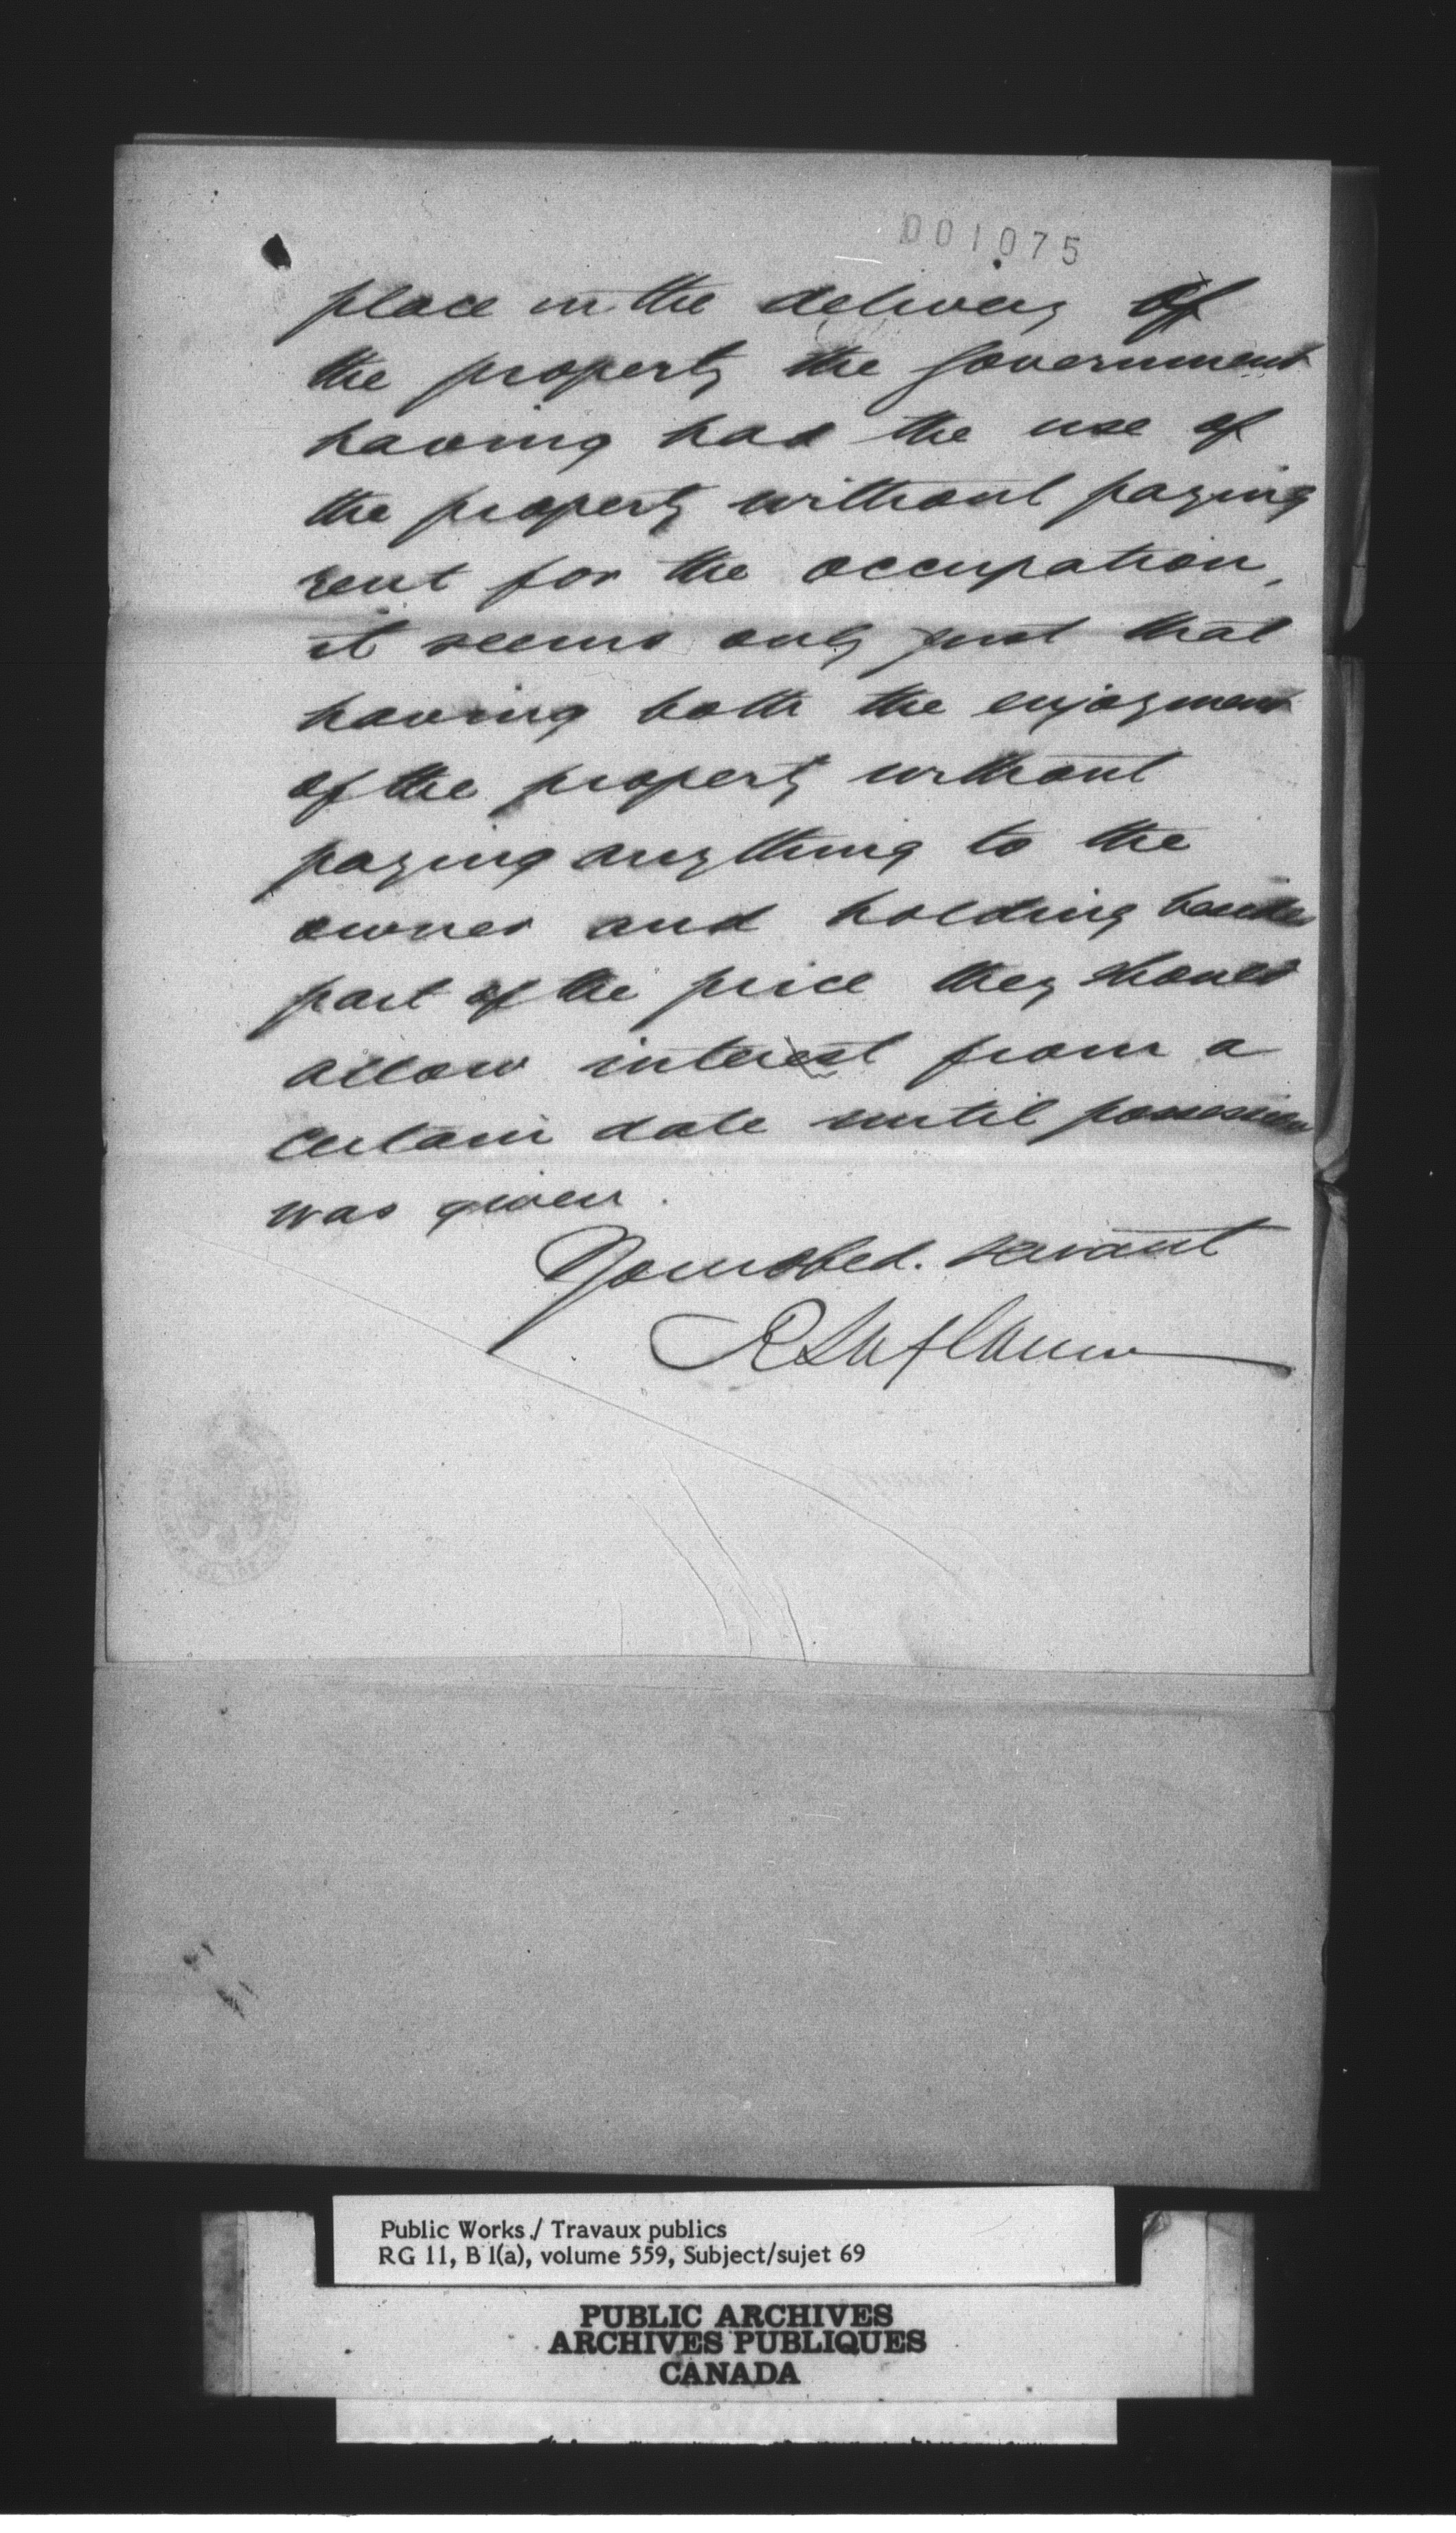 001075
place in the delivery of
the property the Government
having had the use of
the property without paying
rent for the occupation,
it seems only just that
having both the enjoyment
of the property without
paying anything to the
owner and holding besides
part of the price they should
allow interest from a
certain date until possession
was given.
Your obed. servant
R Laflamme
Public Works / Travaux publics
RG 11, B 1(a), volume 559, Subject/sujet 69
PUBLIC ARCHIVES
ARCHIVES PUBLIQUES
CANADA